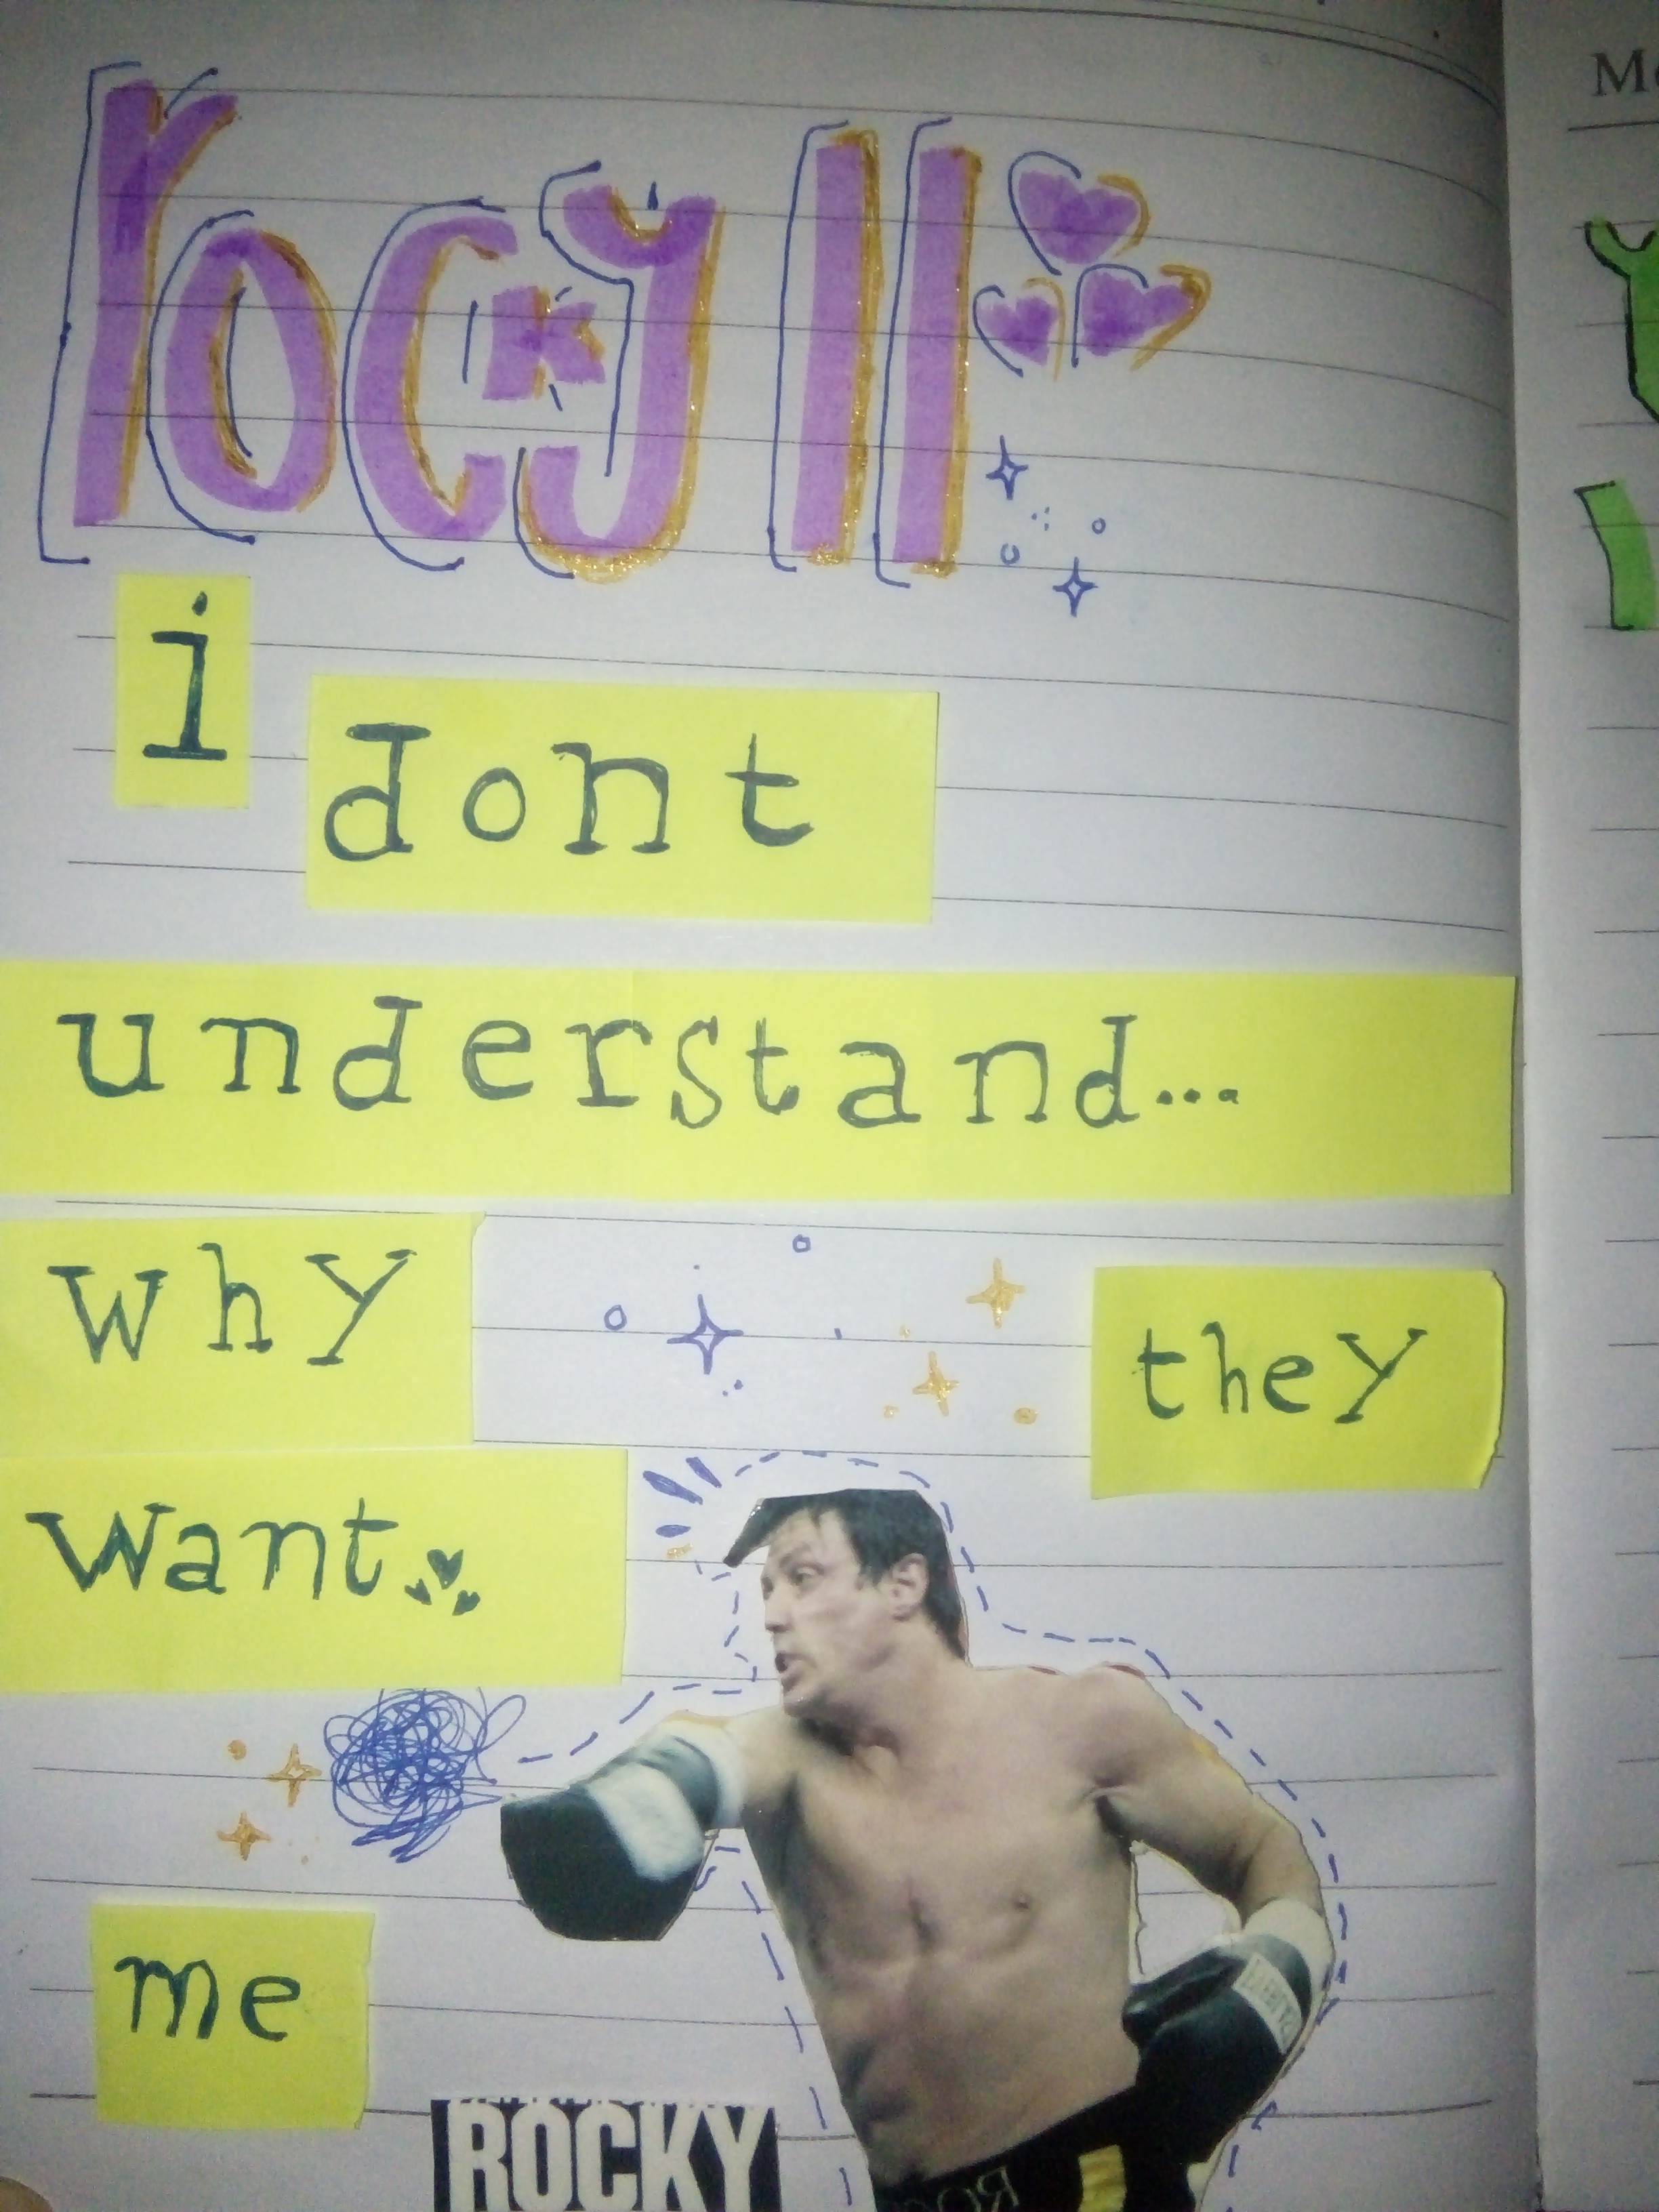 rocky II
i
dont
understand...
why they
want
me
ROCKY